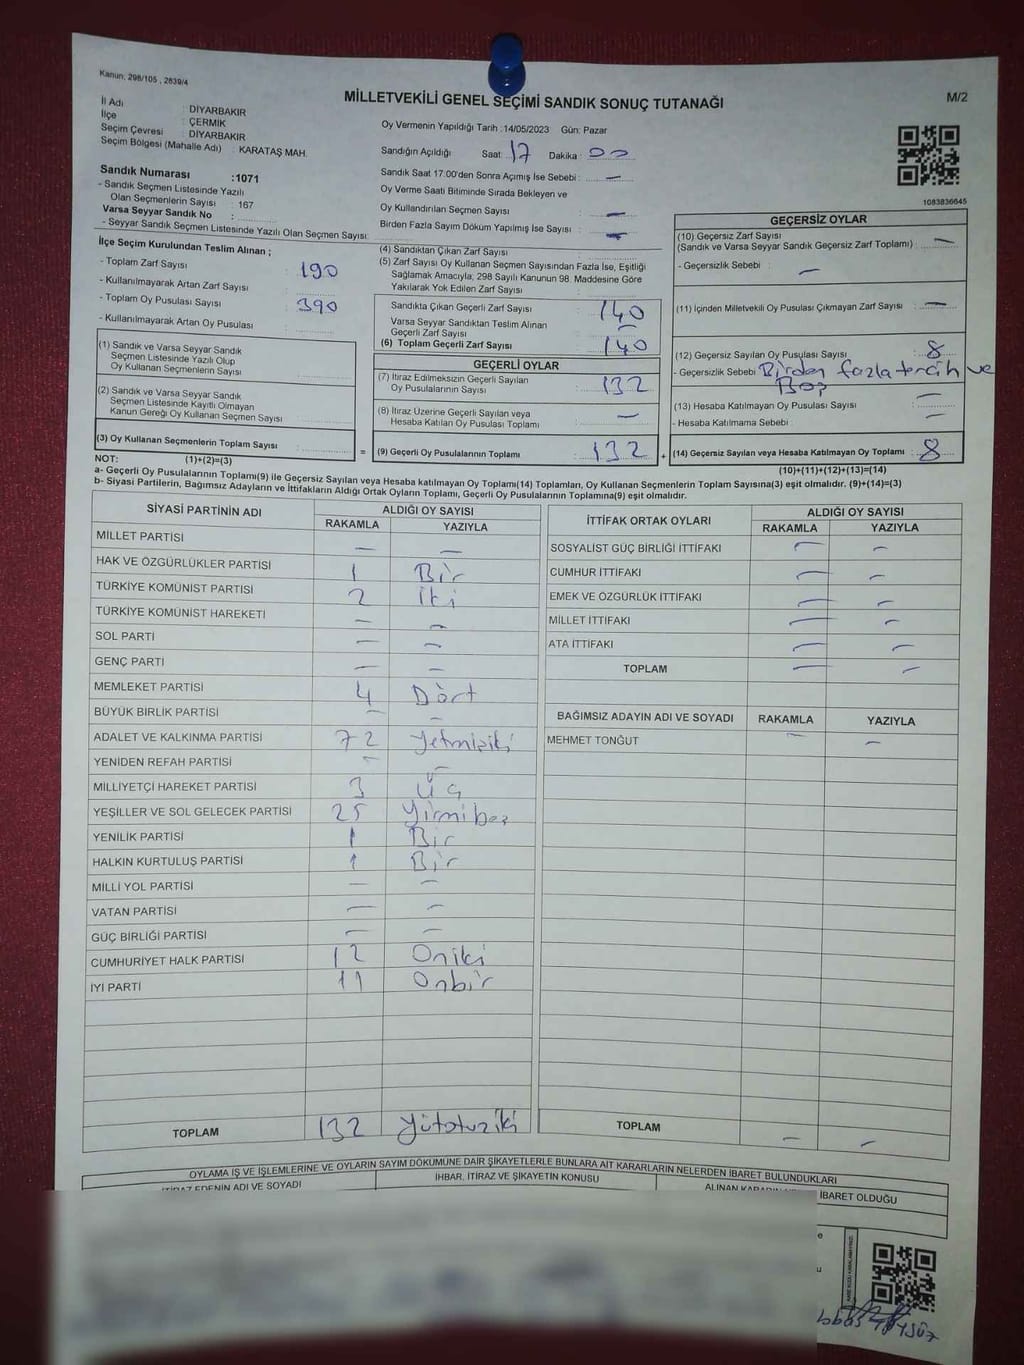 Kanun, 298/105 , 2839/4
MİLLETVEKİLİ GENEL SEÇİMİ SANDIK SONUÇ TUTANAĞI
M/2
İl Adı : DİYARBAKIR
İlçe : ÇERMİK
Seçim Çevresi : DİYARBAKIR
Seçim Bölgesi (Mahalle Adı) : KARATAŞ MAH.
Sandık Numarası :1071
- Sandık Seçmen Listesinde Yazılı
Olan Seçmenlerin Sayısı : 167
Varsa Seyyar Sandık No :
- Seyyar Sandık Seçmen Listesinde Yazılı Olan Seçmen Sayısı:
Oy Vermenin Yapıldığı Tarih :14/05/2023 Gün: Pazar
Sandığın Açıldığı Saat: 17 Dakika : 00
Sandık Saat 17:00'den Sonra Açımış İse Sebebi : —
Oy Verme Saati Bitiminde Sırada Bekleyen ve
Oy Kullandırılan Seçmen Sayısı : —
Birden Fazla Sayım Döküm Yapılmış İse Sayısı : —
1083836645
İlçe Seçim Kurulundan Teslim Alınan ;
- Toplam Zarf Sayısı : 190
- Kullanılmayarak Artan Zarf Sayısı :
- Toplam Oy Pusulası Sayısı : 390
- Kullanılmayarak Artan Oy Pusulası :
(1) Sandık ve Varsa Seyyar Sandık
Seçmen Listesinde Yazılı Olup
Oy Kullanan Seçmenlerin Sayısı :
(2) Sandık ve Varsa Seyyar Sandık
Seçmen Listesinde Kayıtlı Olmayan
Kanun Gereği Oy Kullanan Seçmen Sayısı :
(3) Oy Kullanan Seçmenlerin Toplam Sayısı : =
(4) Sandıktan Çıkan Zarf Sayısı :
(5) Zarf Sayısı Oy Kullanan Seçmen Sayısından Fazla İse, Eşitliği
Sağlamak Amacıyla; 298 Sayılı Kanunun 98. Maddesine Göre
Yakılarak Yok Edilen Zarf Sayısı :
Sandıkta Çıkan Geçerli Zarf Sayısı : 140
Varsa Seyyar Sandıktan Teslim Alınan
Geçerli Zarf Sayısı : —
(6) Toplam Geçerli Zarf Sayısı : 140
GEÇERLİ OYLAR
(7) İtiraz Edilmeksizin Geçerli Sayılan
Oy Pusulalarının Sayısı : 132
(8) İtiraz Üzerine Geçerli Sayılan veya
Hesaba Katılan Oy Pusulası Toplamı : —
(9) Geçerli Oy Pusulalarının Toplamı : 132 +
GEÇERSİZ OYLAR
(10) Geçersiz Zarf Sayısı
(Sandık ve Varsa Seyyar Sandık Geçersiz Zarf Toplamı) : —
- Geçersizlik Sebebi : —
(11) İçinden Milletvekili Oy Pusulası Çıkmayan Zarf Sayısı : —
(12) Geçersiz Sayılan Oy Pusulası Sayısı : 8
- Geçersizlik Sebebi : Birden fazla tercih ve
Boş
(13) Hesaba Katılmayan Oy Pusulası Sayısı : —
- Hesaba Katılmama Sebebi : —
(14) Geçersiz Sayılan veya Hesaba Katılmayan Oy Toplamı : 8
NOT: (1)+(2)=(3)
(10)+(11)+(12)+(13)=(14)
a- Geçerli Oy Pusulalarının Toplamı(9) ile Geçersiz Sayılan veya Hesaba katılmayan Oy Toplamı(14) Toplamları, Oy Kullanan Seçmenlerin Toplam Sayısına(3) eşit olmalıdır. (9)+(14)=(3)
b- Siyasi Partilerin, Bağımsız Adayların ve İttifakların Aldığı Ortak Oyların Toplamı, Geçerli Oy Pusulalarının Toplamına(9) eşit olmalıdır.
SİYASİ PARTİNİN ADI ALDIĞI OY SAYISI
RAKAMLA YAZIYLA
MİLLET PARTİSİ — —
HAK VE ÖZGÜRLÜKLER PARTİSİ 1 Bir
TÜRKİYE KOMÜNİST PARTİSİ 2 İki
TÜRKİYE KOMÜNİST HAREKETİ — —
SOL PARTİ — —
GENÇ PARTİ — —
MEMLEKET PARTİSİ 4 Dört
BÜYÜK BİRLİK PARTİSİ — —
ADALET VE KALKINMA PARTİSİ 72 Yetmişiki
YENİDEN REFAH PARTİSİ — —
MİLLİYETÇİ HAREKET PARTİSİ 3 Üç
YEŞİLLER VE SOL GELECEK PARTİSİ 25 Yirmibeş
YENİLİK PARTİSİ 1 Bir
HALKIN KURTULUŞ PARTİSİ 1 Bir
MİLLİ YOL PARTİSİ — —
VATAN PARTİSİ — —
GÜÇ BİRLİĞİ PARTİSİ — —
CUMHURİYET HALK PARTİSİ 12 Oniki
İYİ PARTİ 11 Onbir
TOPLAM 132 Yüzotuziki
İTTİFAK ORTAK OYLARI ALDIĞI OY SAYISI
RAKAMLA YAZIYLA
SOSYALİST GÜÇ BİRLİĞİ İTTİFAKI — —
CUMHUR İTTİFAKI — —
EMEK VE ÖZGÜRLÜK İTTİFAKI — —
MİLLET İTTİFAKI — —
ATA İTTİFAKI — —
TOPLAM — —
BAĞIMSIZ ADAYIN ADI VE SOYADI RAKAMLA YAZIYLA
MEHMET TONĞUT — —
TOPLAM — —
OYLAMA İŞ VE İŞLEMLERİNE VE OYLARIN SAYIM DÖKÜMÜNE DAİR ŞİKAYETLERLE BUNLARA AİT KARARLARIN NELERDEN İBARET BULUNDUKLARI
İTİRAZ EDENİN ADI VE SOYADI
İHBAR, İTİRAZ VE ŞİKAYETİN KONUSU
İBARET OLDUĞU